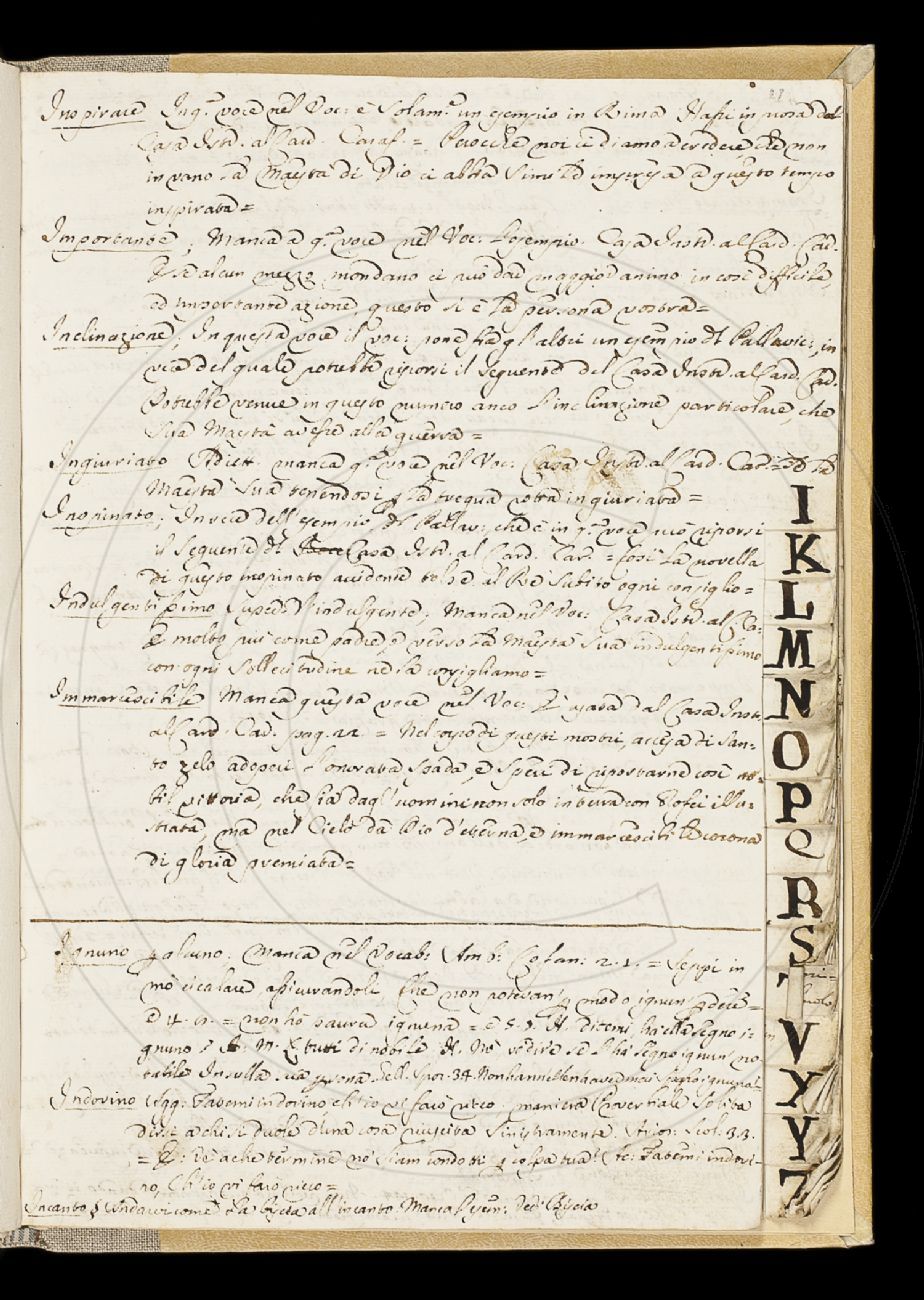 Inspirare In q.ª voce nel Voc: è solam.e un esempio in Rima. Hassi in prosa dal
Casa Istr. al Card. Caraf. = Perocchè noi ci diamo a credere che non
in vano la Maestà di Dio ci abbia simil impresa a questo tempo
inspirata =
Importante, Manca a q.ª voce nel Voc: l'esempio. Casa Instr. al Card. Car.
E se alcun mezzo mondano ci può dar maggior animo in così difficile,
ed importante azione, questo si è la persona vostra =
Inclinazione, In questa voce il Voc: pone fra gl'altri un esempio del Pallavic:, in
vece del quale potrebbe riporsi il seguente del Casa Instr. al Card. Car.
Potrebbe venire in questo numero anco l'inclinazione particolare, che
Sua Maestà avesse alla guerra =
Ingiuriato Adiett. manca q.ª voce nel Voc: Casa Instr. al Card. Car: = la
Maestà Sua tenendosi p la tregua rotta ingiuriata =
Inopinato, In vece dell'esempio del Pallav: che è in q.ª voce può riporsi
il seguente del Casa Istr. al Card. Car. = Così la novella
di questo inopinato accidente tolse al Re subito ogni consiglio =
Indulgentissimo Superl. d'indulgente, Manca nel Voc: Casa Istr. al Ca:
E molto più come padre, e verso la Maestà Sua indulgentissimo
con ogni sollecitudine ne la consigliamo =
Immarcescibile Manca questa voce nel Voc: È usata dal Casa Instr.
al Card. Car. pag. 22. = Nel capo di questi mostri, accesa di san-
to zelo adoperi l'onorata spada, e speri di riportarne così
til vittoria, che sia dagl'uomini non solo in terra con illu-
strata, ma nel Cielo da Dio d'eterna, e immarcescibile corona
di gloria premiata =
Ignuno p alcuno. Manca nel Vocab: Amb: Cofan: 2. 1. = Seppi in
mo' cicalare, assicurandole che non potevan p modo ignun
e 4. = non hò paura ignuna = e 5. Ditemi, ha ella segno i-
gnuno? M. E tutti di nobile Nè vedire se l'ha segno ignun no
tabile In sulla sua psona. Gell. Spor. 34. Non hanno
Indovino Fatemi indovino, ch'io vi farò ricco, maniera Proverbiale solita
dirsi a chi si duole d'una cosa riuscita sinistramente.
= Ve' a che termine no' siam condotti p colpa tua! Fatemi indovi-
no, ch'io vi farò ricco =
Incanto § Andarvi come la biscia all'incanto. Manca l'esem: Ved: Biscia
I
K
L
M
N
O
P
Q
R
S
T
V
Y
Y
Z